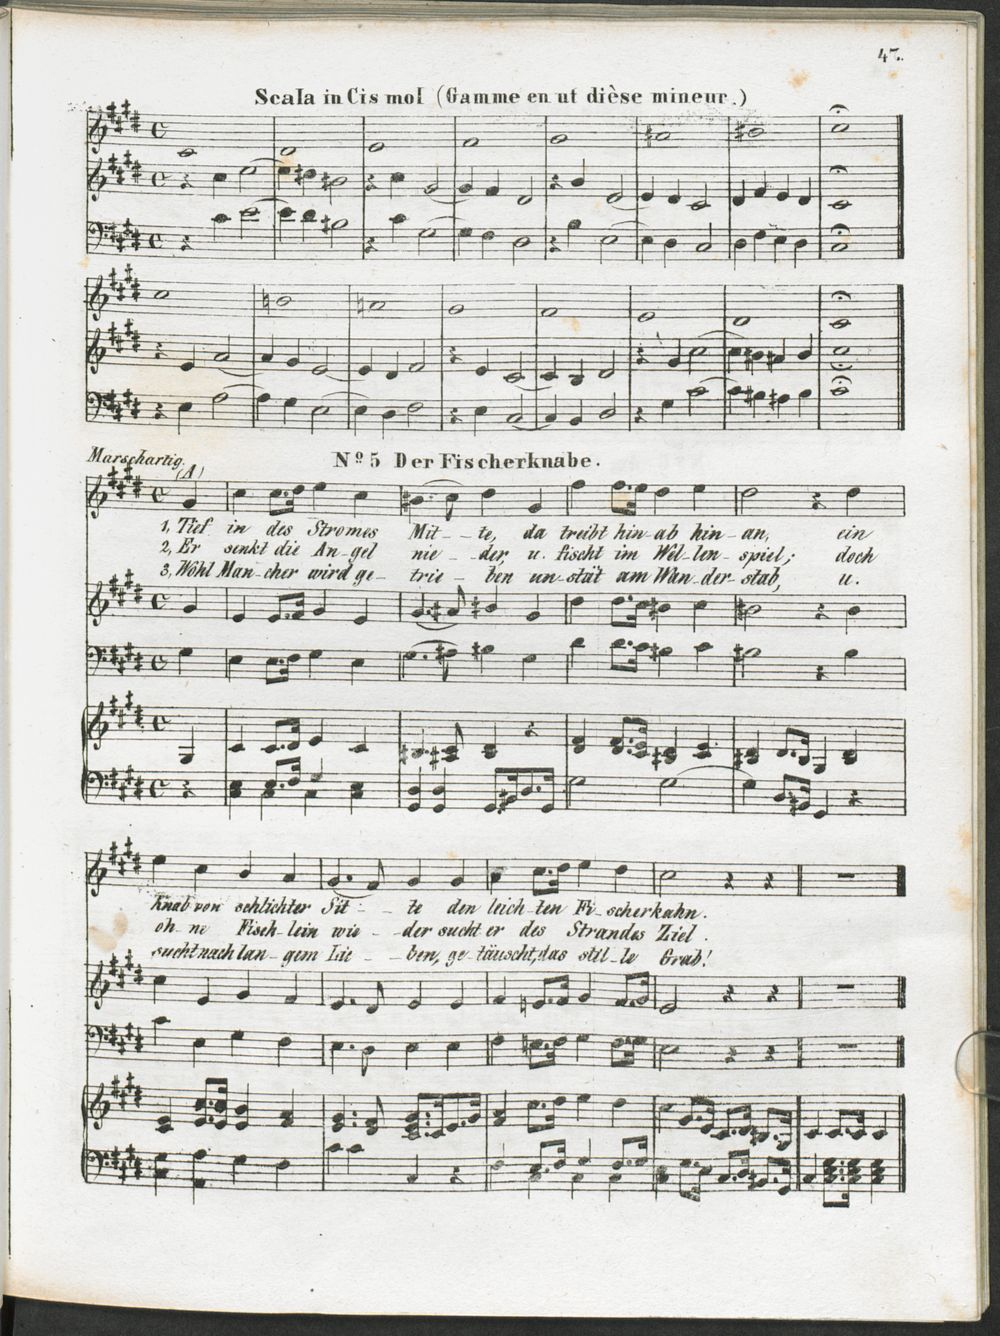 47.
Scala in Cis mol (Gamme en ut dièse mineur.)
Marschartig.
(A)
Nº 5 Der Fischerknabe.
1, Tief in des Stromes Mit - - te, da treibt hin-ab hin-an, ein
2, Er senkt die An-gel nie - - der u. fischt im Wel-len-spiel; doch
3, Wohl Man-cher wird ge-trie - ben un-stät am Wan-der-stab, u.
Knab von schlichter Sit - - te den leich-ten Fi-scherkahn.
oh-ne Fisch-lein wie - - der sucht er des Strandes Ziel.
sucht nach lan-gem Lie - - ben, ge-täuscht, das stil-le Grab!